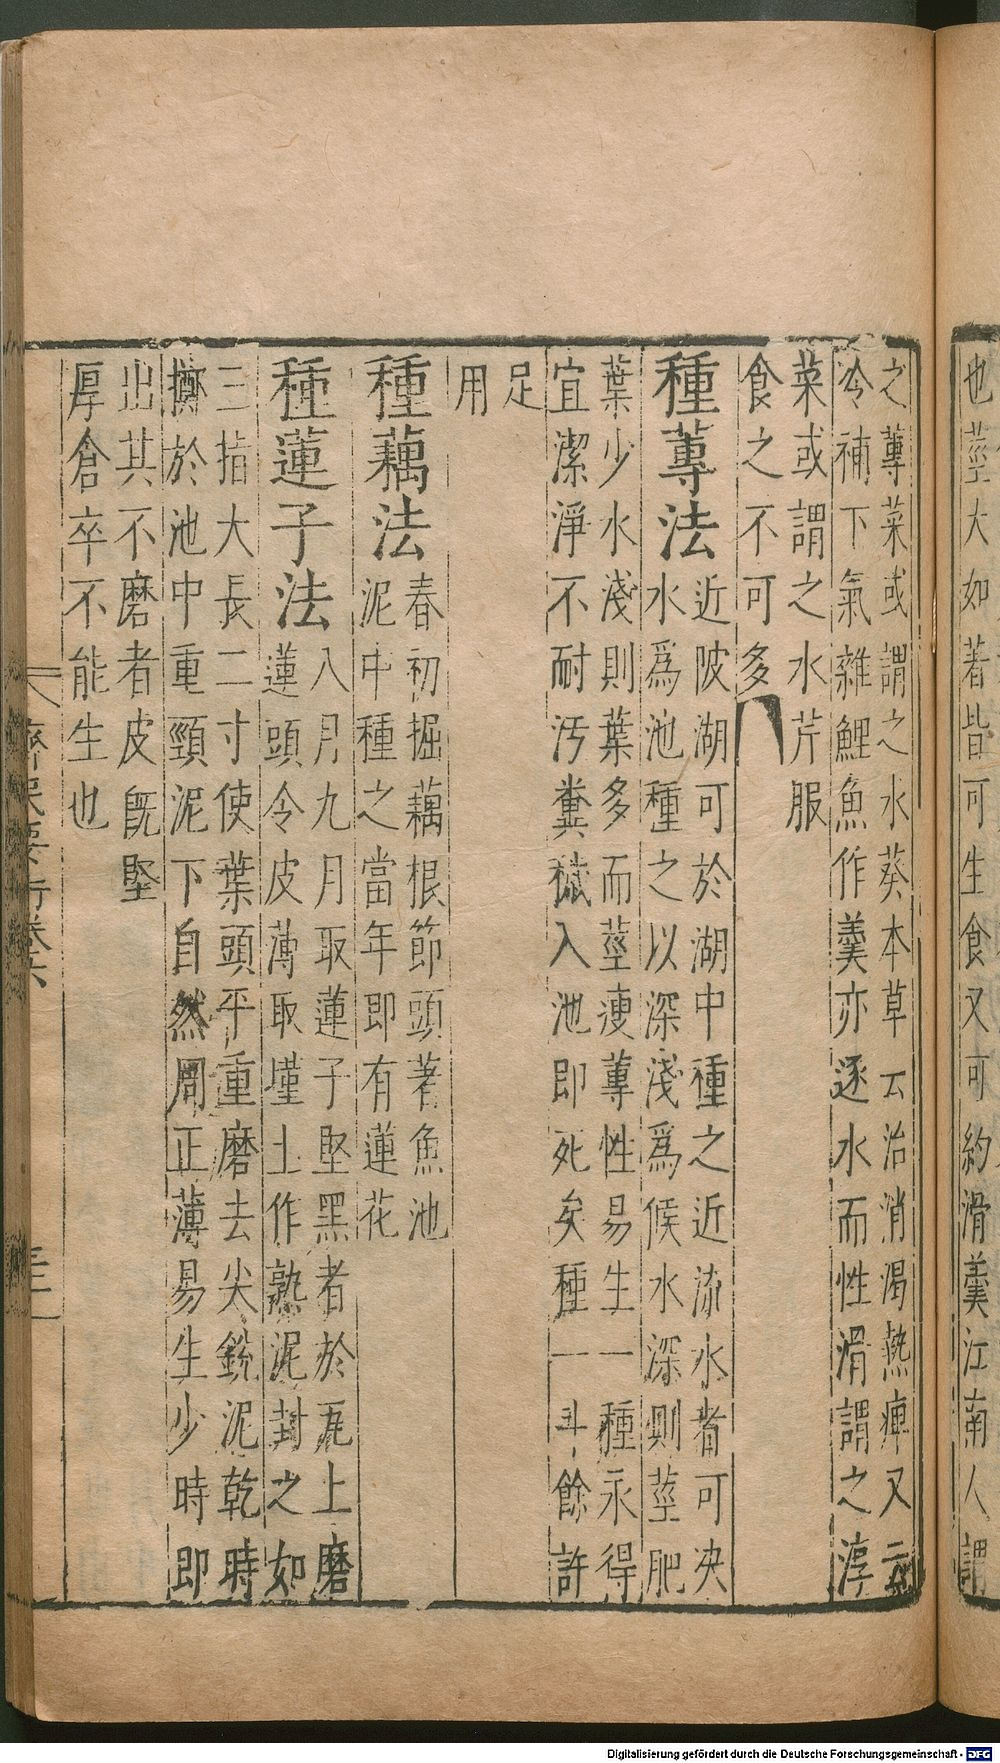 也莖大如著皆可生食又可約滑羹江南人謂
之蓴菜或謂之水葵本草云治消渴熱痺又云
冷補下氣雜鯉魚作羹亦逐水而性滑謂之淳
菜或謂之水芹服
食之不可多
種蓴法
近陂湖可於湖中種之近流水者可决
水爲池種之以深淺爲候水深則莖肥
葉少水淺則葉多而莖瘦蓴性易生一種永得
宜潔淨不耐汚糞穢入池即死矣種一斗餘許
足
用
種藕法
春初掘藕根節頭著魚池
泥中種之當年即有蓮花
種蓮子法
八月九月取蓮子堅黑者於瓦上磨
蓮頭令皮薄取墐土作熟泥封之如
三指大長二寸使葉頭平重磨去尖銳泥乾時
擲於池中重頸泥下自然周正薄易生少時即
出其不磨者皮旣堅
厚倉卒不能生也
齊民要術卷六
Digitalisierung gefördert durch die Deutsche Forschungsgemeinschaft - DFG